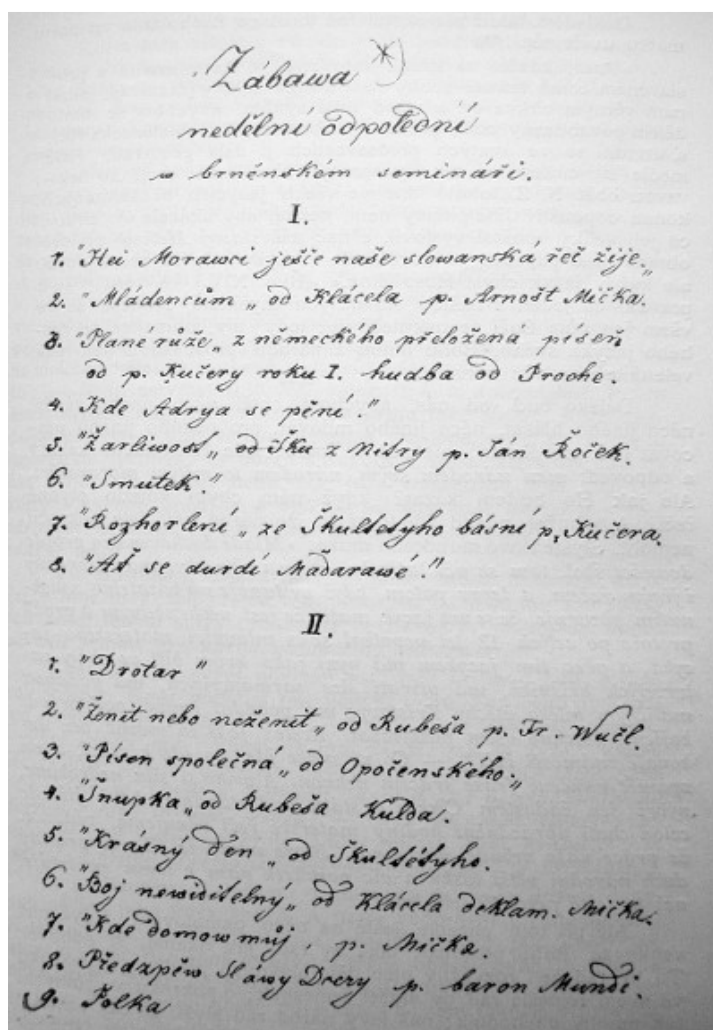 Zábawa *)
nedělní odpolední
w brněnském semináři.
I.
1. "Hei Morawci ješče naše slowanská řeč žije„
2. "Mládencům„ od Klácela p. Arnošt Mička.
3. "Plané růže„ z německého přeložená píseň
od p. Kučery roku I. hudba od Proche.
4. Kde Adrya se pění!"
5. "Žarliwost„ od Šku z Nitry p. Ján Řoček.
6. "Smutek"
7. "Rozhorlení„ ze Škultetyho básní p. Kučera.
8. "Ať se durdí Maďarawé!"
II.
1. "Drotar"
2. "Ženit nebo neženit„ od Rubeša p. Fr. Wučl.
3. "Písen společná„ od Opočenského.„
4. "Šnupka„ od Rubeša Kulda.
5. "Krásný den„ od Škultétyho.
6. "Boj newiditelný„ od Klácela deklam. Mička.
7. "Kde domow můj, p. Mička.
8. Předzpěw Sláwy Dcery p. baron Mundi.
9. Polka